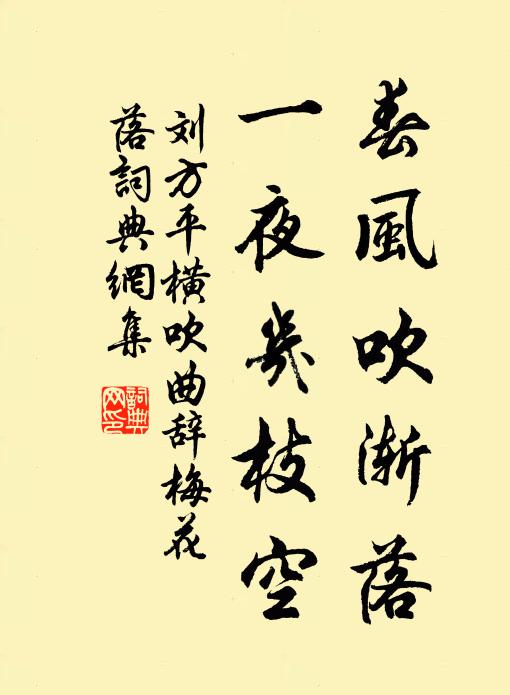 春風吹渐落
一夜幾枝空
刘方平橫吹曲辞梅花
落詞典網集
詞典
网印